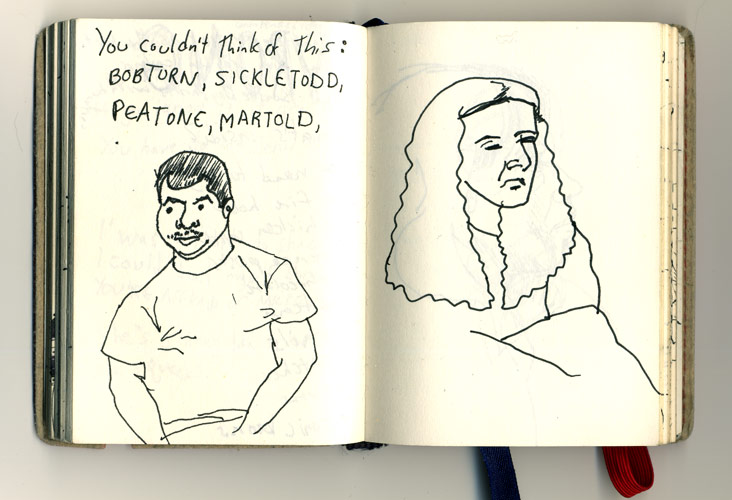 You couldn't think of this:
BOBTORN, SICKLETODD,
PEATONE, MARTOLD,